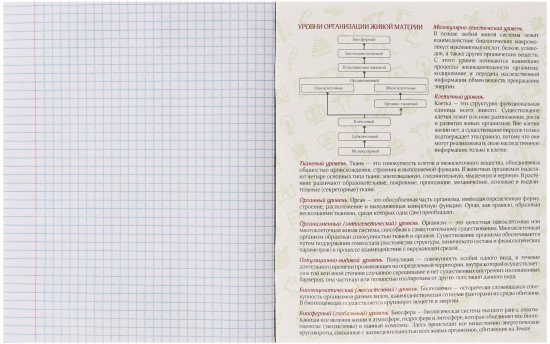 УРОВНИ ОРГАНИЗАЦИИ ЖИВОЙ МАТЕРИИ
Биосферный
Биогеоценотический
Популяционно-видовой
Организменный
Одноклеточные
Многоклеточные
Органно-тканевый
Клеточный
Субклеточный
Молекулярный
Молекулярно-генетический уровень
В основе любой живой системы лежит
взаимодействие биологических макромо-
лекул: нуклеиновых кислот, белков, углево-
дов, а также других органических веществ.
С этого уровня начинаются важнейшие
процессы жизнедеятельности организма:
кодирование и передача наследственной
информации, обмен веществ, превращение
энергии.
Клеточный уровень
Клетка — это структурно-функциональная
единица всего живого. Существование
клетки лежит в основе размножения, роста
и развития живых организмов. Вне клетки
жизни нет, а существование вирусов только
подтверждает это правило, потому что они
могут реализовывать свою наследственную
информацию только в клетке.
Тканевый уровень. Ткань — это совокупность клеток и межклеточного вещества, объединенных
общностью происхождения, строения и выполняемой функции. В животных организмах выделя-
ют четыре основных типа ткани: эпителиальную, соединительную, мышечную и нервную. В расте-
ниях различают образовательные, покровные, проводящие, механические, основные и выдели-
тельные (секреторные) ткани.
Органный уровень. Орган — это обособленная часть организма, имеющая определенную форму,
строение, расположение и выполняющая конкретную функцию. Орган, как правило, образован
несколькими тканями, среди которых одна (две) преобладает.
Организменный (онтогенетический) уровень. Организм — это целостная одноклеточная или
многоклеточная живая система, способная к самостоятельному существованию. Многоклеточный
организм образован совокупностью тканей и органов. Существование организма обеспечивается
путем поддержания гомеостаза (постоянства структуры, химического состава и физиологических
параметров) в процессе взаимодействия с окружающей средой.
Популяционно-видовой уровень. Популяция — совокупность особей одного вида, в течение
длительного времени проживающих на определенной территории, внутри которой осуществляет-
ся в той или иной степени случайное скрещивание и нет существенных внутренних изоляционных
барьеров; она частично или полностью изолирована от других популяций данного вида.
Биогеоценотический (экосистемный) уровень. Биогеоценоз — исторически сложившаяся сово-
купность организмов разных видов, взаимодействующая со всеми факторами их среды обитания.
В биогеоценозах осуществляется круговорот веществ и энергии.
Биосферный (глобальный) уровень. Биосфера — биологическая система высшего ранга, охваты-
вающая все явления жизни в атмосфере, гидросфере и литосфере, которая объединяет все биоге-
оценозы (экосистемы) в единый комплекс. Здесь происходят все вещественно-энергетические
круговороты, связанные с жизнедеятельностью всех живых организмов, обитающих на Земле.